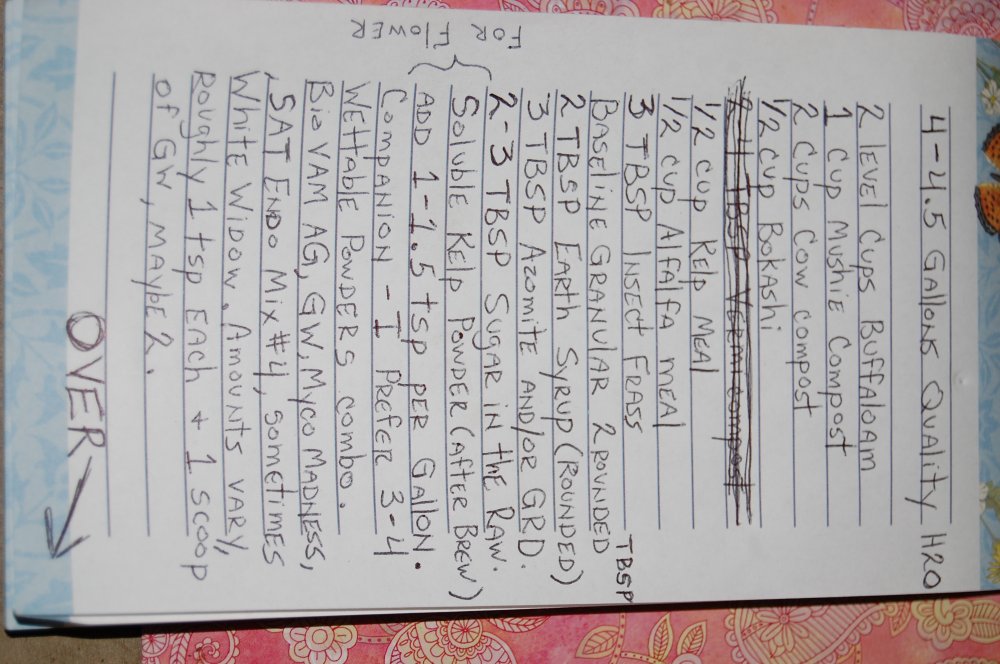 4-4.5 Gallons Quality H2O
2 level Cups Buffaloam
1 Cup Mushie Compost
2 Cups Cow compost
1/2 Cup Bokashi
2-4 TBSP Vermicompost
1/2 cup Kelp Meal
1/2 cup Alfalfa meal
3 TBSP Insect Frass
Baseline Granular 2 rounded TBSP
2 TBSP Earth Syrup (Rounded)
3 TBSP Azomite and/or GRD.
2-3 TBSP Sugar in the Raw.
Soluble Kelp Powder (after Brew)
ADD 1-1.5 tsp per Gallon.
FOR FLOWER
Companion - I Prefer 3-4
Wettable Powders combo.
Bio VAM AG, GW, Myco Madness,
SAT Endo Mix #4, Sometimes
White Widow. Amounts vary,
Roughly 1 tsp Each + 1 scoop
of GW, maybe 2.
OVER